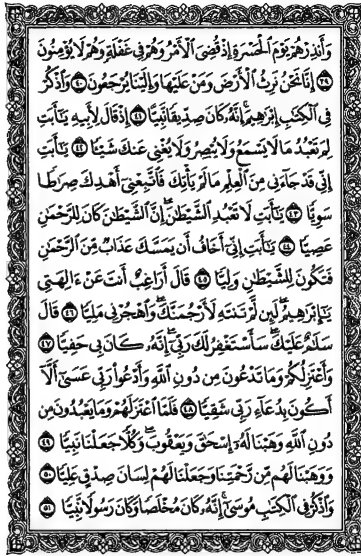 وَأَنذِرْهُمْ يَوْمَ الْحَسْرَةِ إِذْ قُضِيَ الْأَمْرُ وَهُمْ فِي غَفْلَةٍ وَهُمْ لَا يُؤْمِنُونَ
٣٩ إِنَّا نَحْنُ نَرِثُ الْأَرْضَ وَمَنْ عَلَيْهَا وَإِلَيْنَا يُرْجَعُونَ ٤٠ وَاذْكُرْ
فِي الْكِتَٰبِ إِبْرَٰهِيمَ ۚ إِنَّهُ كَانَ صِدِّيقًا نَّبِيًّا ٤١ إِذْ قَالَ لِأَبِيهِ يَٰٓأَبَتِ
لِمَ تَعْبُدُ مَا لَا يَسْمَعُ وَلَا يُبْصِرُ وَلَا يُغْنِي عَنكَ شَيْئًا ٤٢ يَٰٓأَبَتِ
إِنِّي قَدْ جَآءَنِي مِنَ الْعِلْمِ مَا لَمْ يَأْتِكَ فَاتَّبِعْنِيٓ أَهْدِكَ صِرَٰطًا
سَوِيًّا ٤٣ يَٰٓأَبَتِ لَا تَعْبُدِ الشَّيْطَٰنَ ۖ إِنَّ الشَّيْطَٰنَ كَانَ لِلرَّحْمَٰنِ
عَصِيًّا ٤٤ يَٰٓأَبَتِ إِنِّيٓ أَخَافُ أَن يَمَسَّكَ عَذَابٌ مِّنَ الرَّحْمَٰنِ
فَتَكُونَ لِلشَّيْطَٰنِ وَلِيًّا ٤٥ قَالَ أَرَاغِبٌ أَنتَ عَنْ ءَالِهَتِي
يَٰٓإِبْرَٰهِيمُ ۖ لَئِن لَّمْ تَنتَهِ لَأَرْجُمَنَّكَ ۖ وَاهْجُرْنِي مَلِيًّا ٤٦ قَالَ
سَلَٰمٌ عَلَيْكَ ۖ سَأَسْتَغْفِرُ لَكَ رَبِّيٓ ۖ إِنَّهُ كَانَ بِي حَفِيًّا ٤٧
وَأَعْتَزِلُكُمْ وَمَا تَدْعُونَ مِن دُونِ اللَّهِ وَأَدْعُوا۟ رَبِّي عَسَىٰٓ أَلَّآ
أَكُونَ بِدُعَآءِ رَبِّي شَقِيًّا ٤٨ فَلَمَّا اعْتَزَلَهُمْ وَمَا يَعْبُدُونَ مِن
دُونِ اللَّهِ وَهَبْنَا لَهُ إِسْحَٰقَ وَيَعْقُوبَ ۖ وَكُلًّا جَعَلْنَا نَبِيًّا ٤٩
وَوَهَبْنَا لَهُم مِّن رَّحْمَتِنَا وَجَعَلْنَا لَهُمْ لِسَانَ صِدْقٍ عَلِيًّا ٥٠
وَاذْكُرْ فِي الْكِتَٰبِ مُوسَىٰٓ ۚ إِنَّهُ كَانَ مُخْلَصًا وَكَانَ رَسُولًا نَّبِيًّا ٥١